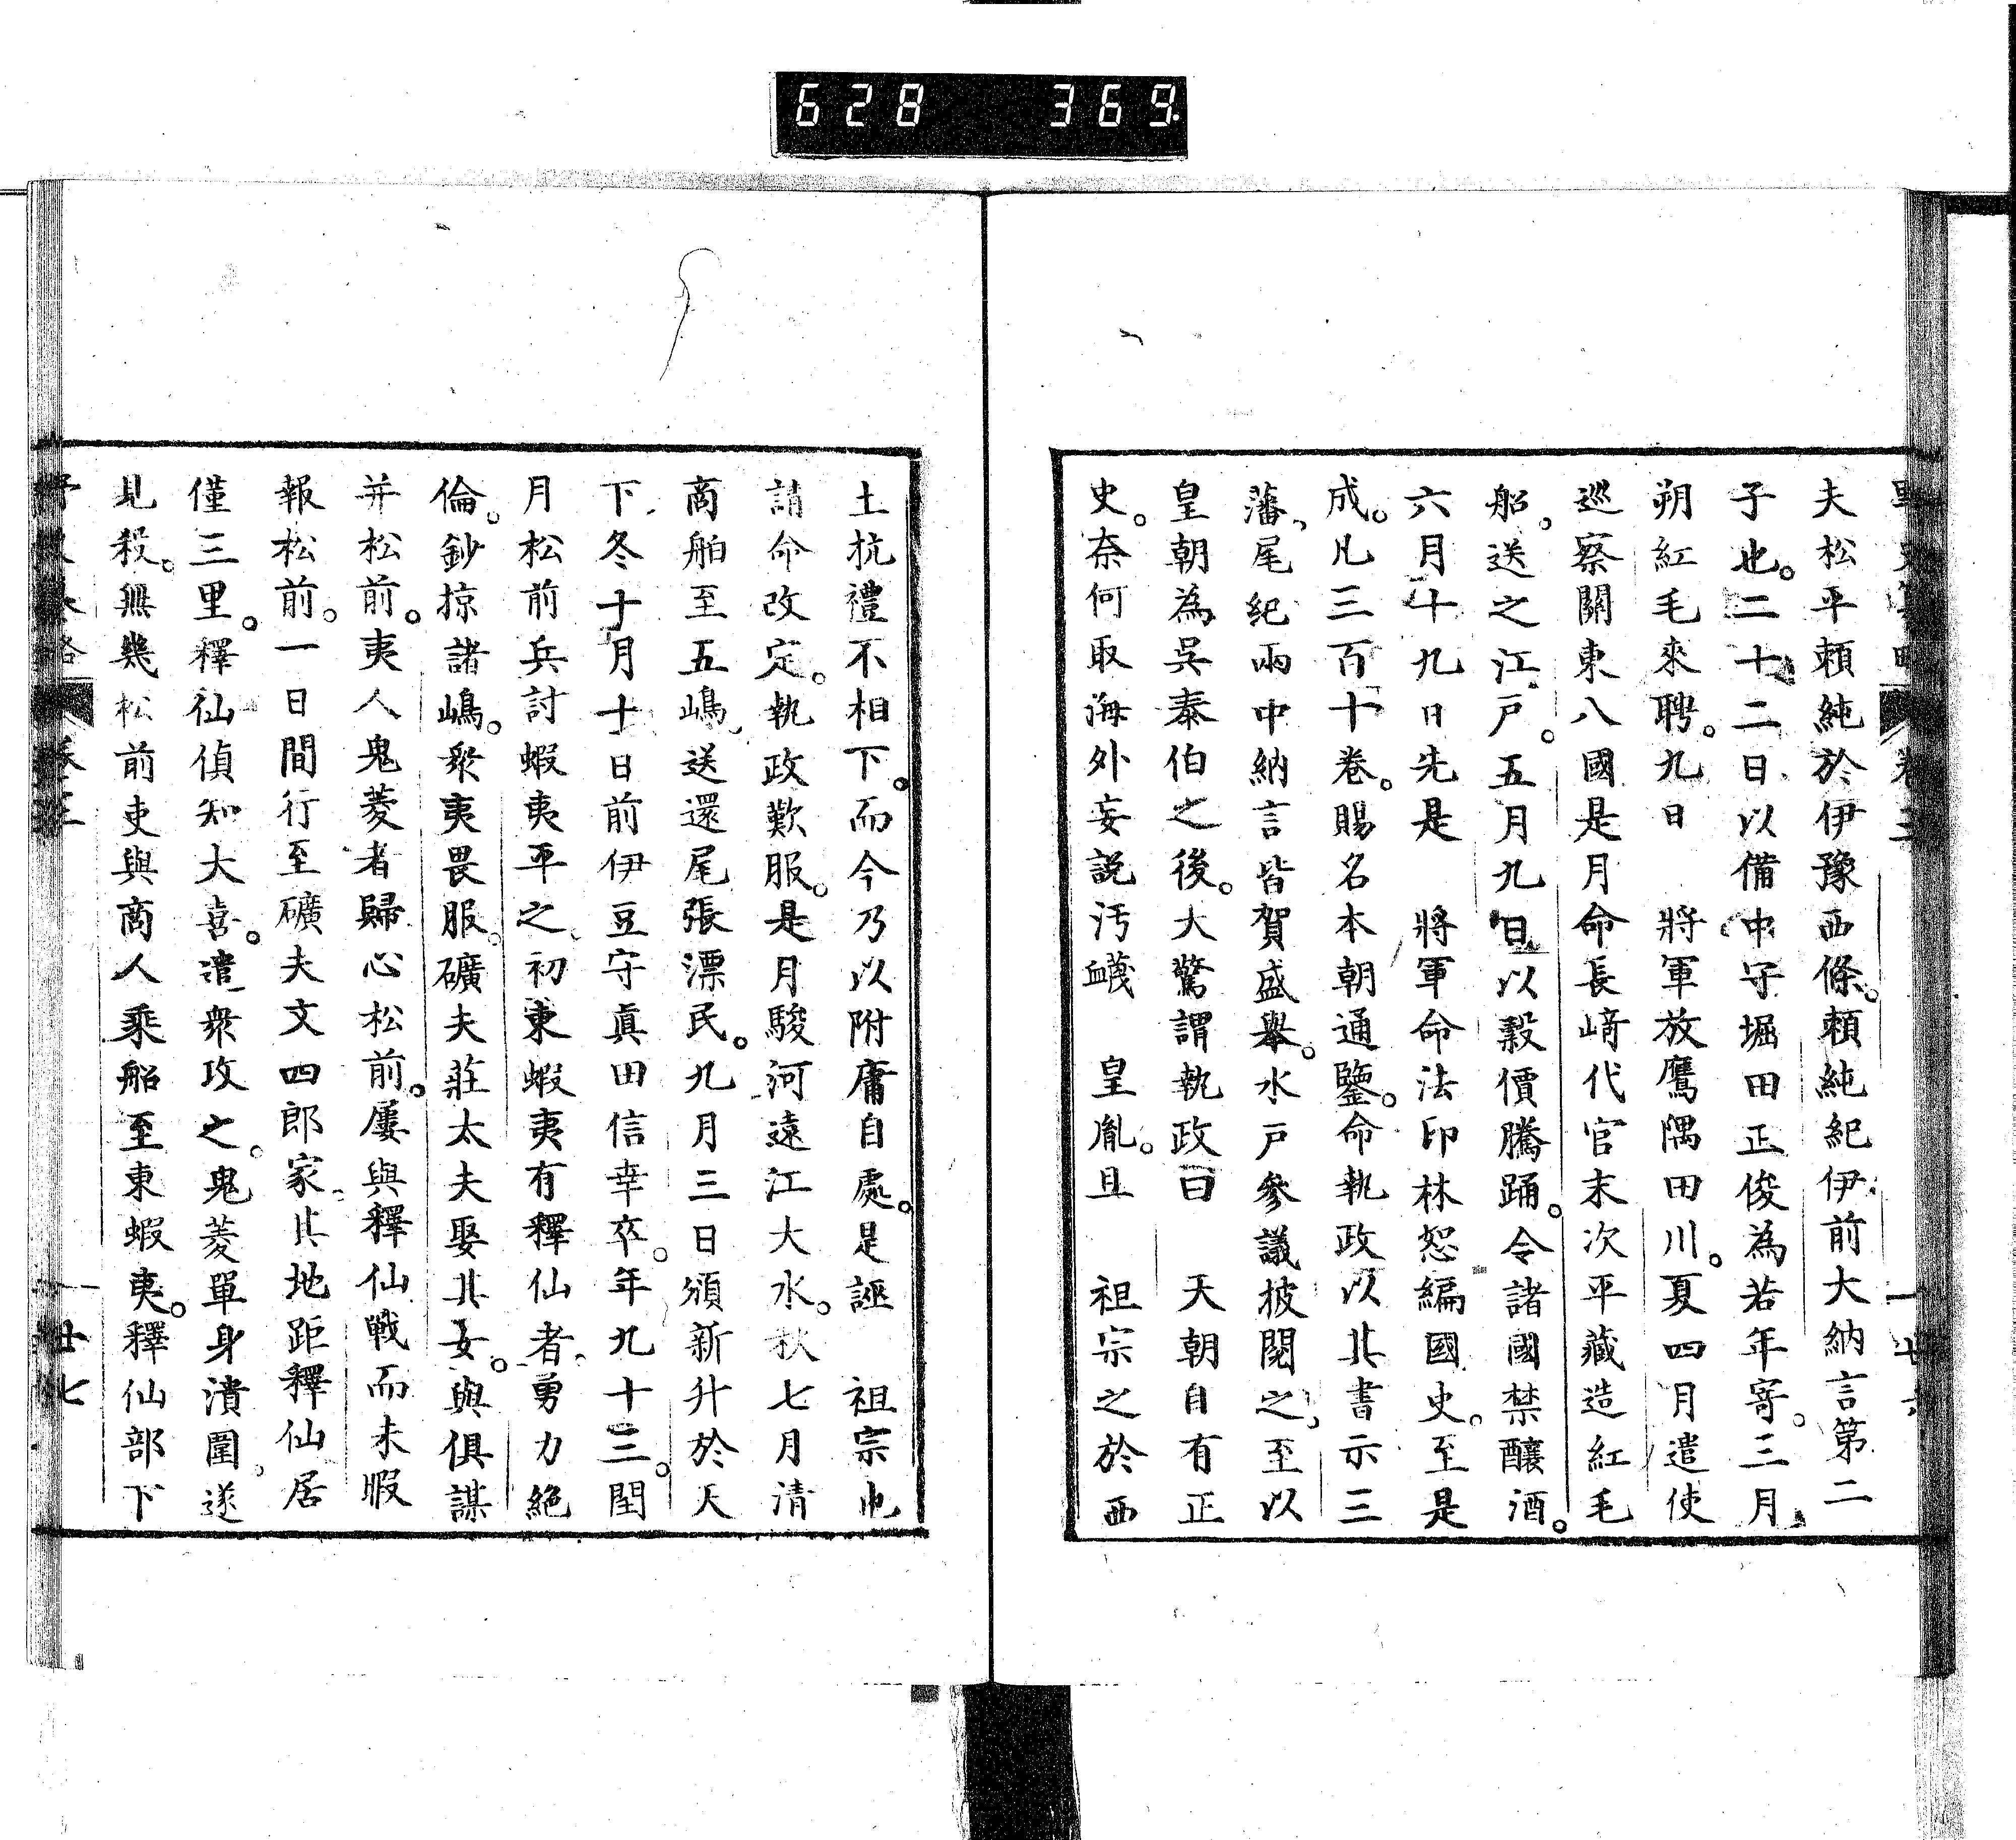 628 369
夫松平頼純於伊豫西條。頼純紀伊前大納言第二
子也。二十二日以備中守堀田正俊為若年寄。三月
朔紅毛來聘。九日　將軍放鷹隅田川。夏四月遣使
巡察關東八國是月命長﨑代官末次平藏造紅毛
船。送之江戸。五月九日以穀價騰踊。令諸國禁釀酒。
六月十九日先是　將軍命法印林恕編國史。至是
成。凡三百十卷。賜名本朝通鑒。命執政以其書示三
藩、尾紀兩中納言皆賀盛舉。水戸參議披閲之、至以
皇朝為吳泰伯之後。大驚謂執政曰　天朝自有正
史。奈何取海外妄説汚衊　皇胤。且　祖宗之於西
土抗禮不相下。而今乃以附庸自處。是誣　祖宗也
請命改定。執政歎服。是月駿河遠江大水。秋七月清
商舶至五嶋、送還尾張漂民。九月三日頒新升於天
下、冬十月十日前伊豆守眞田信幸卒。年九十三。閏
月松前兵討蝦夷平之、初東蝦夷有釋仙者。勇力絶
倫。鈔掠諸嶋。衆夷畏服。礦夫莊太夫娶其女。與俱謀
并松前。夷人鬼菱者歸心松前。屢與釋仙戰而未暇
報松前。一日間行至礦夫文四郎家。其地距釋仙居
僅三里。釋仙偵知大喜。遣衆攻之。鬼菱單身潰圍。遂
見殺。無幾松前吏與商人乘船至東蝦夷。釋仙部下
卷三
廿七